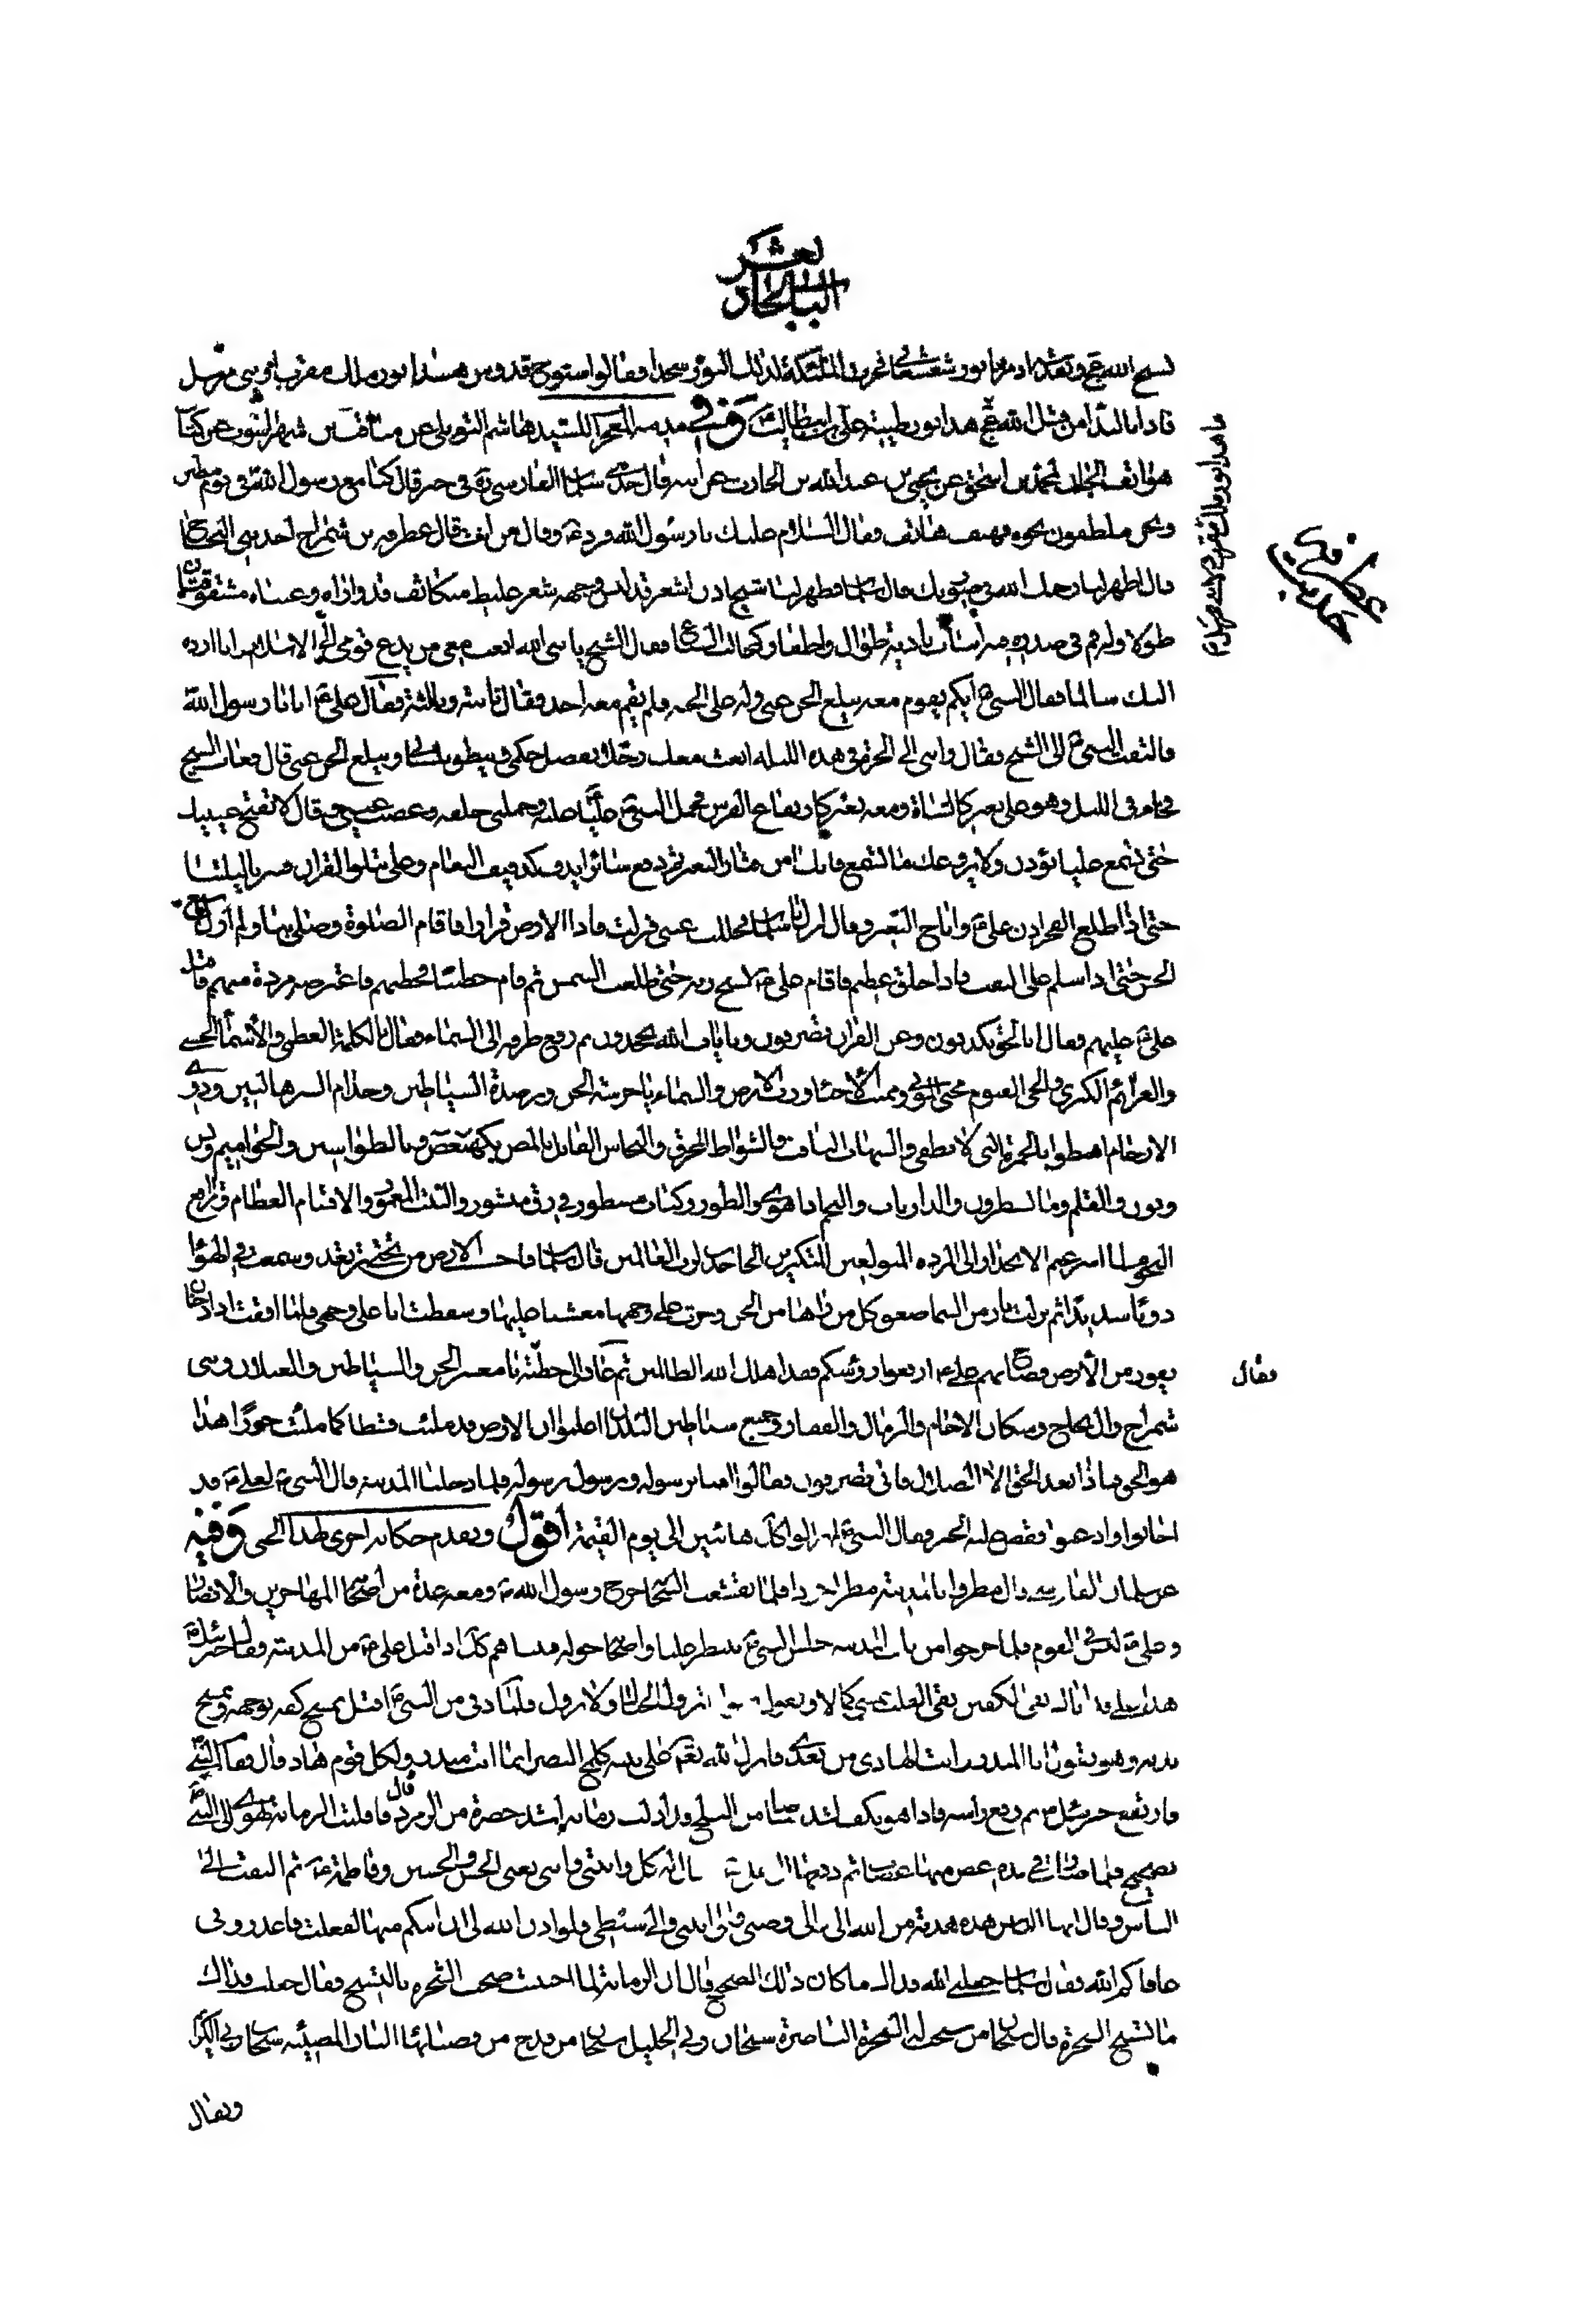 الباب الحادي عشر
نسبح الله عز و نقدسه اذ مر بنا نور شعشعاني فخرت الملئكة لذلك النور سجدا فقالوا سبوح قدوس هذا نور ملك مقرب او نبي مرسل
فاذا بالنداء من قبل الله عز هذا نور طينة علي بن ابيطالب وفي مدينة المعجز للسيد هاشم التوبلي عن مناقب بن شهراشوب عن كتاب
هواتف الجان لمحمد بن اسحق عن يحيى بن عبد الله بن الحارث عن ابيه قال حدثني سلمان الفارسي في خبر قال كنا مع رسول الله في يوم مطير
ونحن ملتفون نحوه فهتف هاتف وقال السلام عليك يا رسول الله فرد ع وقال من انت قال عطرفة بن شمراخ احد بني النجاح
قال اظهر لنا رحمك الله في صورتك قال سلمان فظهر لنا شيخ اذن اشعر قد لبس وجهه شعر غليظ متكاثف قد واراه وعيناه مشقوقتان
طولا وله فم في صدره فيه انياب بادية طوال واظفاره كمخالب السباع فقال الشيخ يا نبي الله ابعث معي من يدعو قومي الى الاسلام وانا ارده
اليك سالما فقال النبي ايكم يقوم معه فيبلغ الجن عني وله علي الجنة فلم يقم معه احد فقال ثانية وثالثة فقال علي ع انا يا رسول الله
فالتفت النبي الى الشيخ فقال وافني الى الحرة في هذه الليلة ابعث معك رجلا يفصل حكمي وينطق بلساني ويبلغ الجن عني قال فغاب الشيخ
فجاء في الليل وهو على بعير كالشاة ومعه بعير كارتفاع الفرس فحمل النبي عليا عليه وحملني خلفه وعصب عيني وقال لا تفتح عينيك
حتى تسمع عليا يؤذن ولا يروعك ما تسمع فانك امن فثار البعير ثم دفع سائرا يدف كدفيف النعام وعلي يتلو القران فسرنا ليلتنا
حتى اذا طلع الفجر اذن علي ع واناخ البعير وقال انزل يا سلمان فحللت عيني فنزلت فاذا الارض قوراء فاقام الصلوة وصلى بنا ولم ازل اسمع
الحس حتى اذا سلم علي التفت فاذا خلق عظيم فاقام علي يسبح ربه حتى طلعت الشمس ثم قام خطيبا فخطبهم فاعترضه مردة منهم فاقبل
علي ع عليهم فقال ابالحق تكذبون وعن القران تصدفون وبايات الله تجحدون ثم رفع طرفه الى السماء فقال بالكلمة العظمى والاسماء الحسنى
والعزائم الكبرى والحي القيوم محيي الموتى ومميت الاحياء ورب الارض والسماء يا حرسة الجن ورصدة الشياطين وخدام السرهاليين وذوي
الارحام اهبطوا بالجمرة التي لا تطفى والشهاب الثاقب والشواظ المحرق والنحاس القاتل بالمص بكهيعص وبالطواسين والحواميم ويس
ونون والقلم وما يسطرون والذاريات والنجم اذا هوى والطور وكتاب مسطور في رق منشور والبيت المعمور والاقسام العظام ومواقع
النجوم لما اسرعتم الانحدار الى المردة المتولعين المتكبرين الجاحدين لرب العالمين قال سلمان فاحسست الارض من تحتي ترتعد وسمعت في الهواء
دويا شديدا ثم نزلت نار من السماء صعق كل من راها من الجن وخرت على وجهها مغشيا عليها وسقطت انا على وجهي فلما افقت اذا دخان
يفور من الارض فصاح بهم علي ع ارفعوا رؤسكم فقد اهلك الله الظالمين ثم عاد الى خطبته يا معشر الجن والشياطين والغيلان وبني
شمراخ وال نجاح وسكان الاجام والرمال والقفار وجميع شياطين البلدان اعلموا ان الارض قد ملئت قسطا كما ملئت جورا هذا
هو الحق فماذا بعد الحق الا الضلال فانى تصرفون فقالوا امنا برسوله ورسول رسوله فلما دخلنا المدينة قال النبي لعلي ع قد
اجابوا واذعنوا وقص عليه الخبر فقال النبي لا يزالوا كل هائبين الى يوم القيمة اقول وتقدم حكاية اخرى لهذا الجني وفيه
عن سلمان الفارسي قال مطروا بالمدينة مطرا جودا فلما تقشعت السحاب خرج رسول الله ومعه عدة من اصحابه المهاجرين والانصار
وعلي ع ليس في القوم فلما خرجوا من باب المدينة جلس النبي ينتظر عليا واصحابه حوله فبينا هم كذا اذ اقبل علي ع من المدينة فقال جبرئيل
هذا علي قد اتاك نقي الكفين نقي القلب يمشي كمالا ويقول صوابا تزول الجبال ولا يزول فلما دنى من النبي اقبل يمسح كفه بوجهه ويمسح
بدنه وهو يقول انا المنذر انت الهادي من بعدي فانزل الله تعم على نبيه كلمح البصر انما انت منذر ولكل قوم هاد قال فقام النبي
فارتفع جبرئيل ثم رفع راسه فاذا هو بكف اشد بياضا من الثلج قد ادلت رمانة اشد خضرة من الزمرد قال فاقبلت الرمانة تهوي الى النبي
بضجيج فلما صارت في يده عض منها عضات ثم دفعها الى علي وقال له كل وابنتي وابني يعني الحسن والحسين وفاطمة ع ثم التفت الى
الناس وقال ايها الناس هذه هدية من الله الي والى وصيي والى ابنتي والى سبطي فلو اذن الله لي ان اتيكم منها لفعلت فاعذروني
عافاكم الله فقال سلمان جعلني الله فداك ما كان ذلك الضجيج قال ان الرمانة لما اجتنت ضجت الشجرة بالتسبيح فقال جعلت فداك
ما تسبيح الشجرة قال سبحان من سبحت له الشجرة الناضرة سبحان ربي الجليل سبحان من قدح من قضبانها النار المضيئة سبحان ربي الكريم
فقال
ويقال